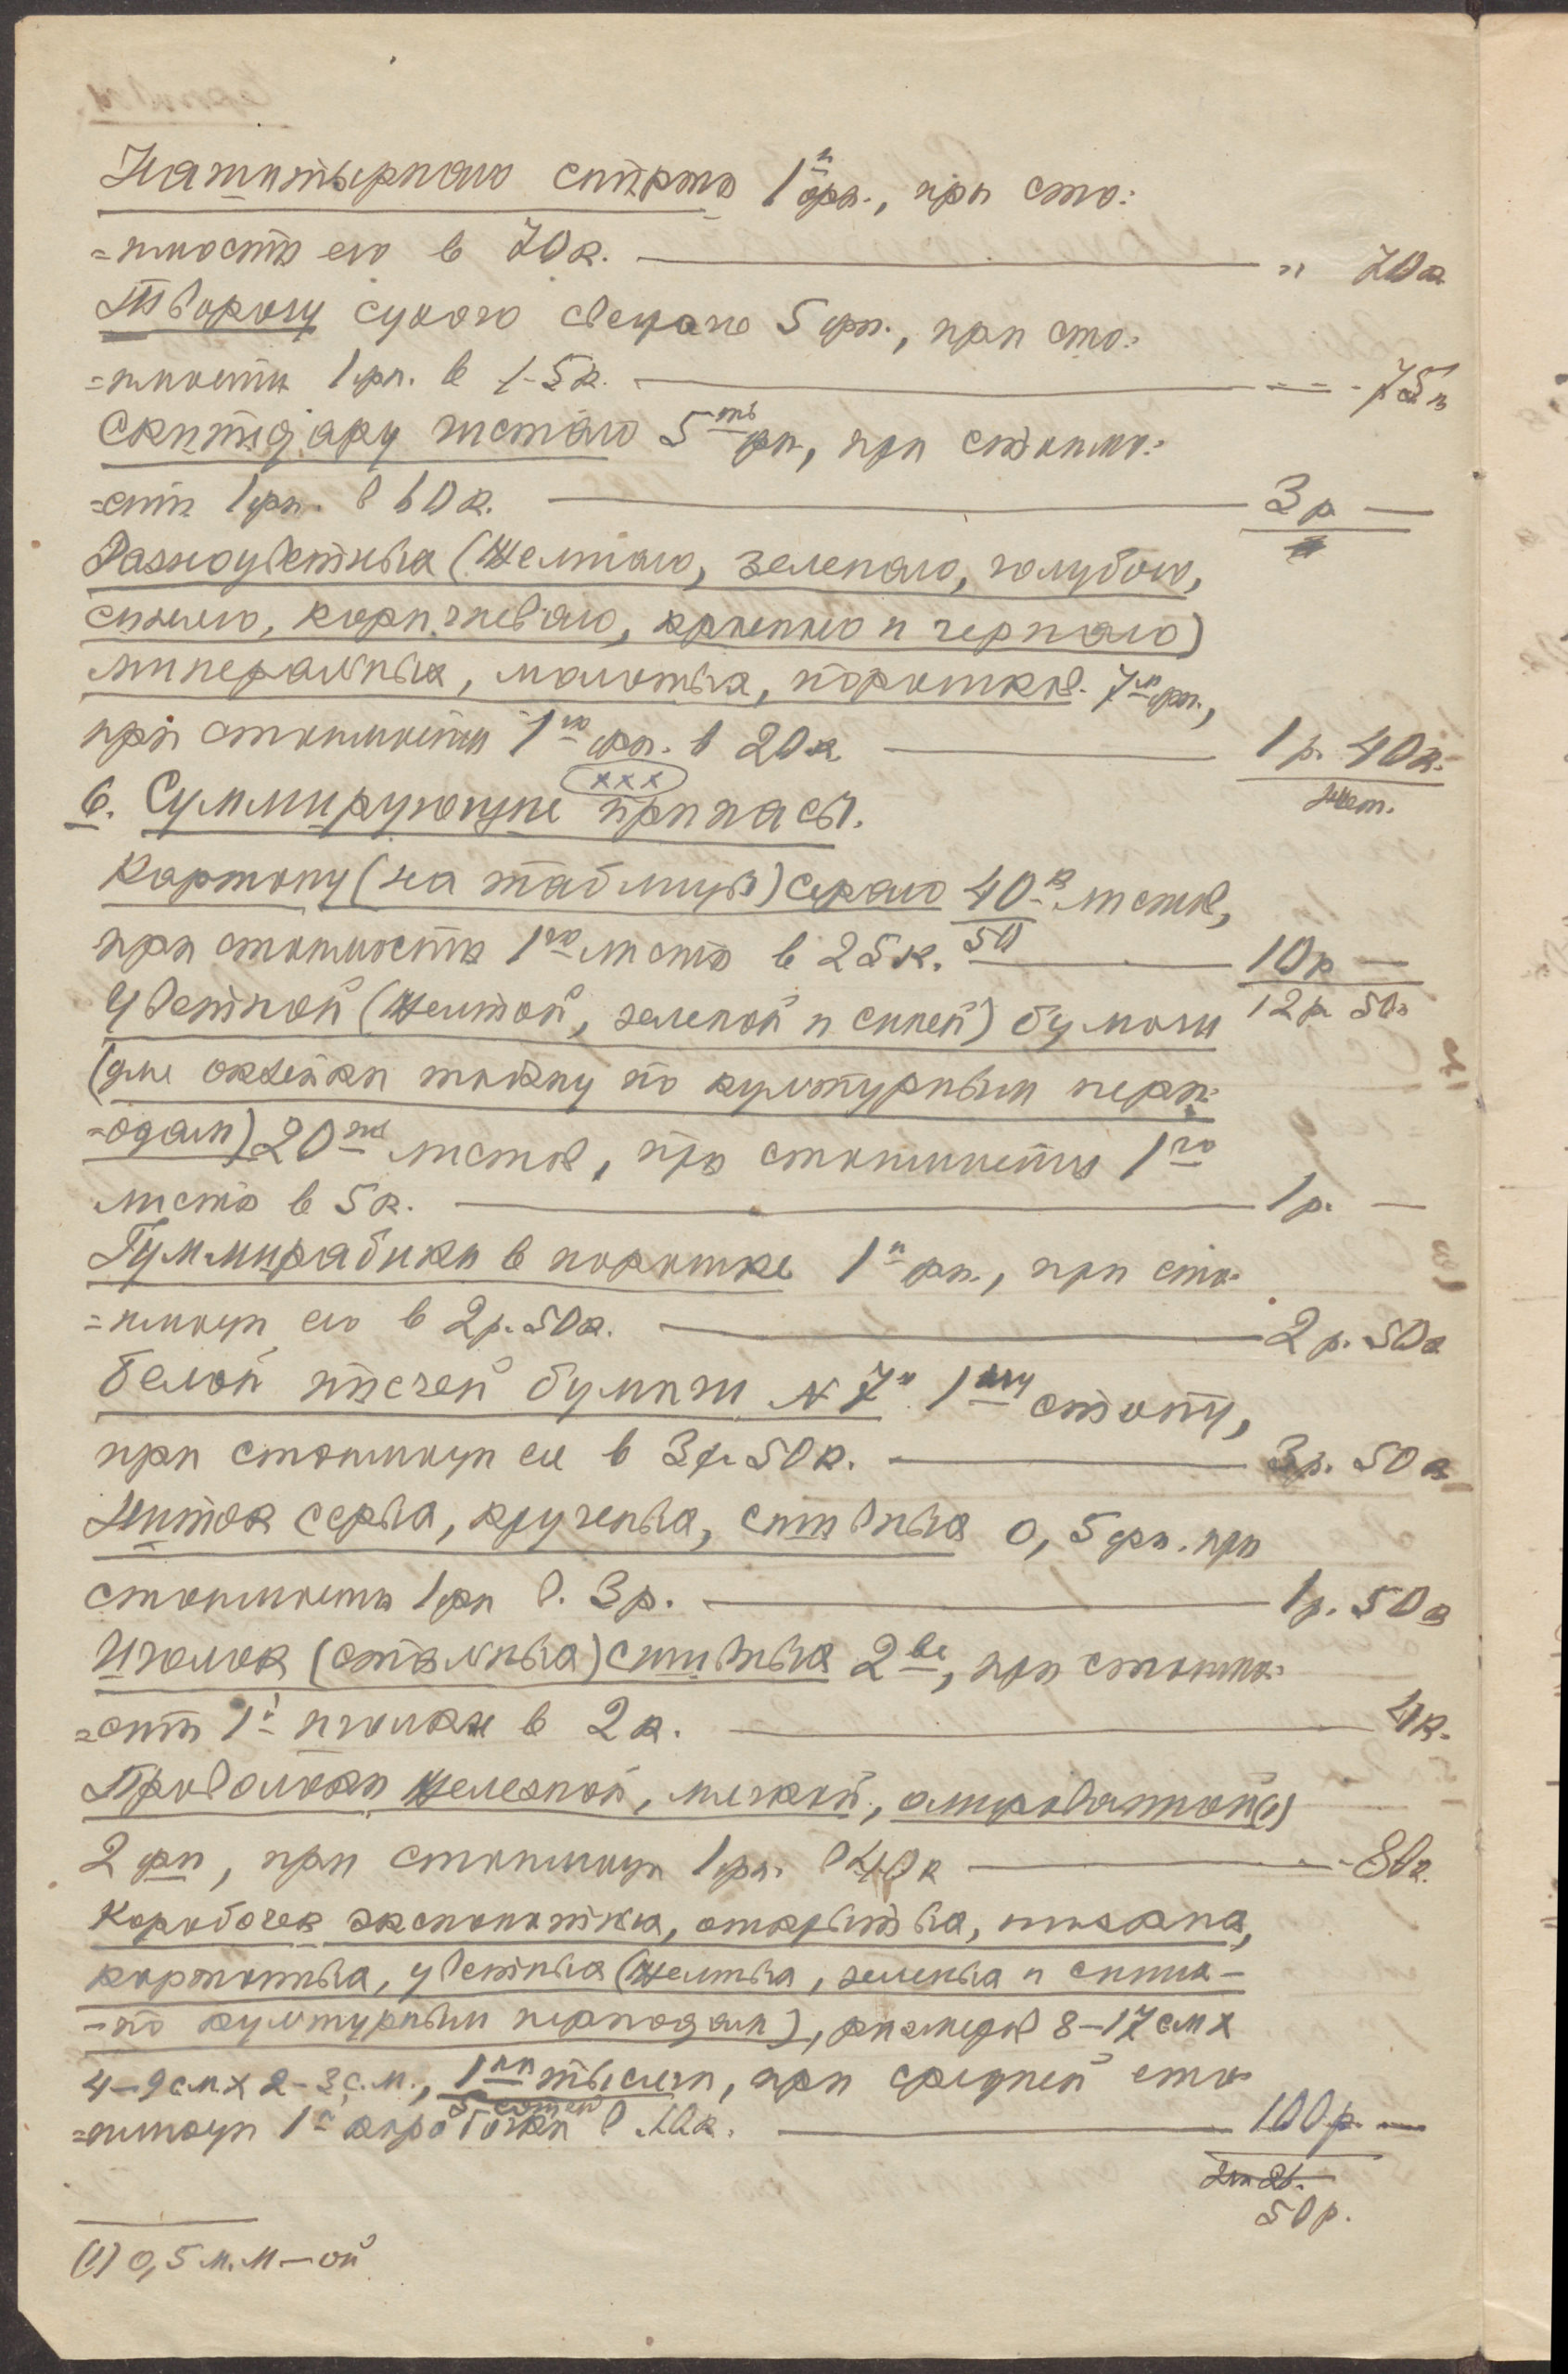 Нашатырнаго спирта 1 н фн., при сто:
=имости его в 70 к. — " 70 к
Творогу сухого свежаго 5 фн., при сто:
=имости 1 фн. в 15 к. — 75 к
Скипидару чистаго 5 ть фн., при стоимо:
=сти 1 фн. в 60 к. — 3 р —
Разноцветных (желтаго, зеленаго, голубого,
синего, коричневаго, краснаго и чернаго)
минеральных, молотых, порошков. 7 м фн.,
при стоимости 1 го фн. в 20 к — 1 р. 40 к.
xxx
6. Суммирующие припасы.
Картону (на таблицы) сераго 40 к листов,
50
при стоимости 1 го листа в 25 к. — 10 р —
12 р 50 к
Цветной (желтой, зеленой и синей) бумаги
(для оклейки по культурным пери:
=одам) 20 ть листов, при стоимости 1 го
листа в 5 к. — 1 р. —
Гуммирабика в порошке 1 н фн., при сто:
=имости его в 2 р. 50 к. — 2 р. 50 к
Белой писчей бумаги N 7 1 ну стопу,
при стоимости ее в 3 р 50 к. — 3 р. 50 к
Ниток серых, крученых, 0,5 фн. при
стоимости 1 фн в. 3 р. — 1 р. 50 к
Иголок (стальных) сшивных 2 ве, при стоимо:
=сти 1 й иголки в 2 к. — 4 к.
Проволоки железной, мягкой, (1)
2 фн, при стоимости 1 фн. в 40 к — 80 к.
Коробочек экспонатных, открытых, низких,
картонных, цветных (желтых, зеленых и синих —
— по культурным периодам), размеров 8–17 см х
4–9 см х 2–3 с.м., 1 ну тысячу, при средней сто:
5 сотен
=имости 1 й коробочки в 10 к. — 100 р. —
50 р.
(1) 0,5 м.м — ой